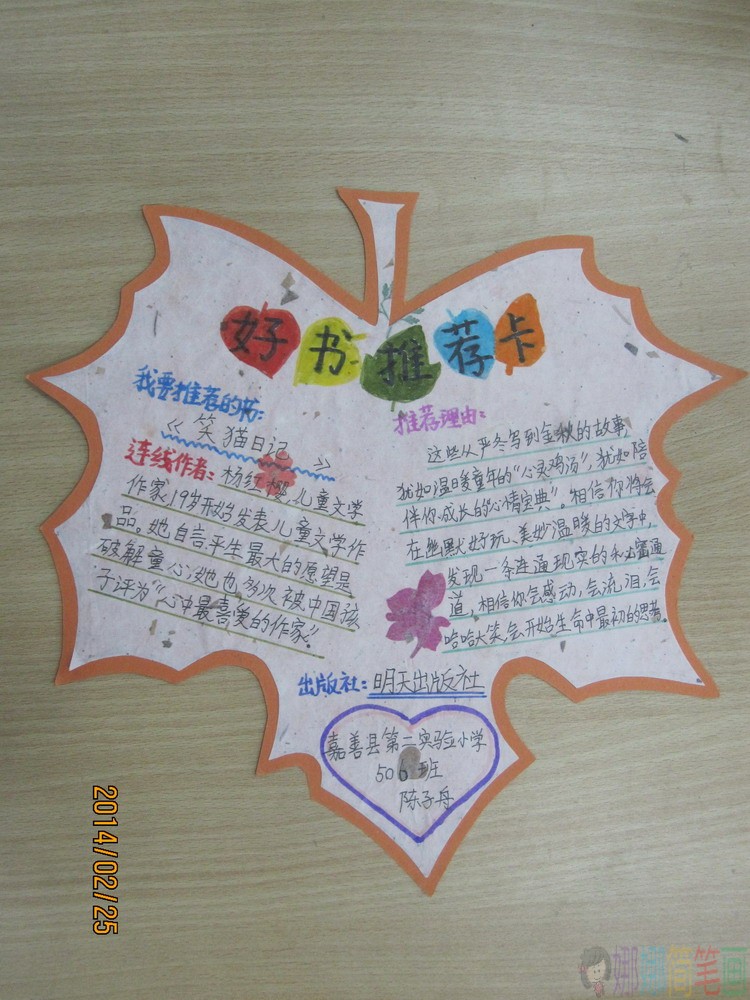 好书推荐卡
我要推荐的书:
《笑猫日记》
连线作者:杨红樱,儿童文学
作家,19岁开始发表儿童文学作
品。她自言平生最大的愿望是
破解童心,她也多次被中国孩
子评为“心中最喜爱的作家”。
推荐理由:
这些从严冬写到金秋的故事,
犹如温暖童年的“心灵鸡汤”,犹如陪
伴你成长的“心情宝典”。相信你将会
在幽默好玩、美妙温暖的文字中,
发现一条连通现实的秘密通
道,相信你会感动,会流泪,会
哈哈大笑,会开始生命中最初的思考。
出版社:明天出版社
嘉善县第二实验小学
506班
陈子舟
2014/02/25
娜娜简笔画